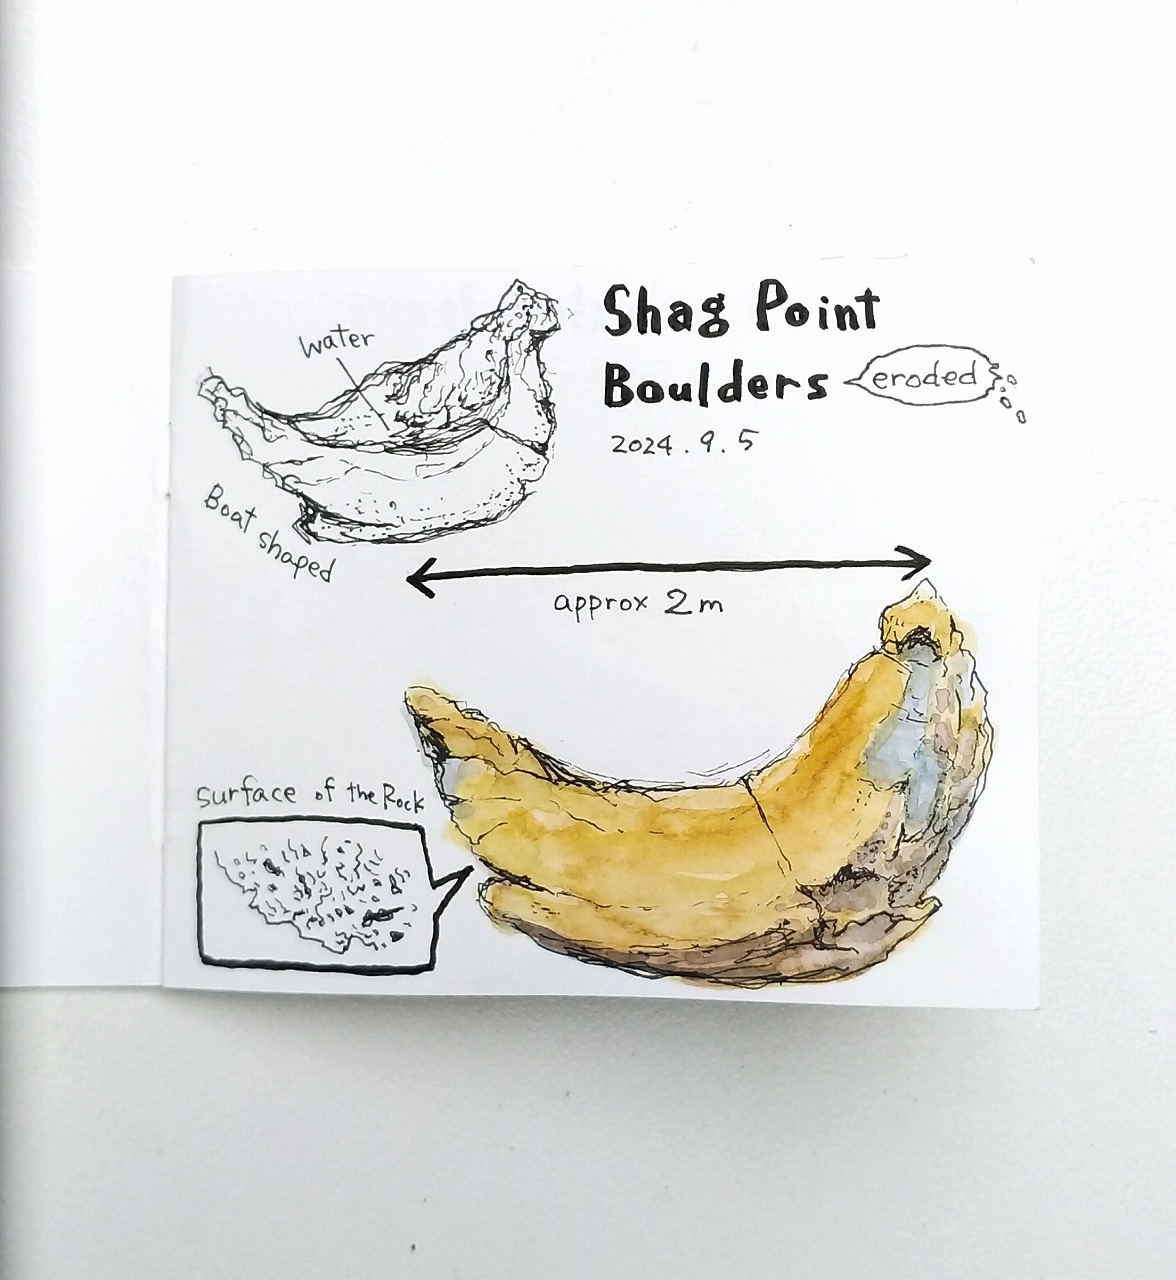 Shag Point
Boulders
eroded
2024.9.5
water
Boat shaped
approx 2m
surface of the Rock